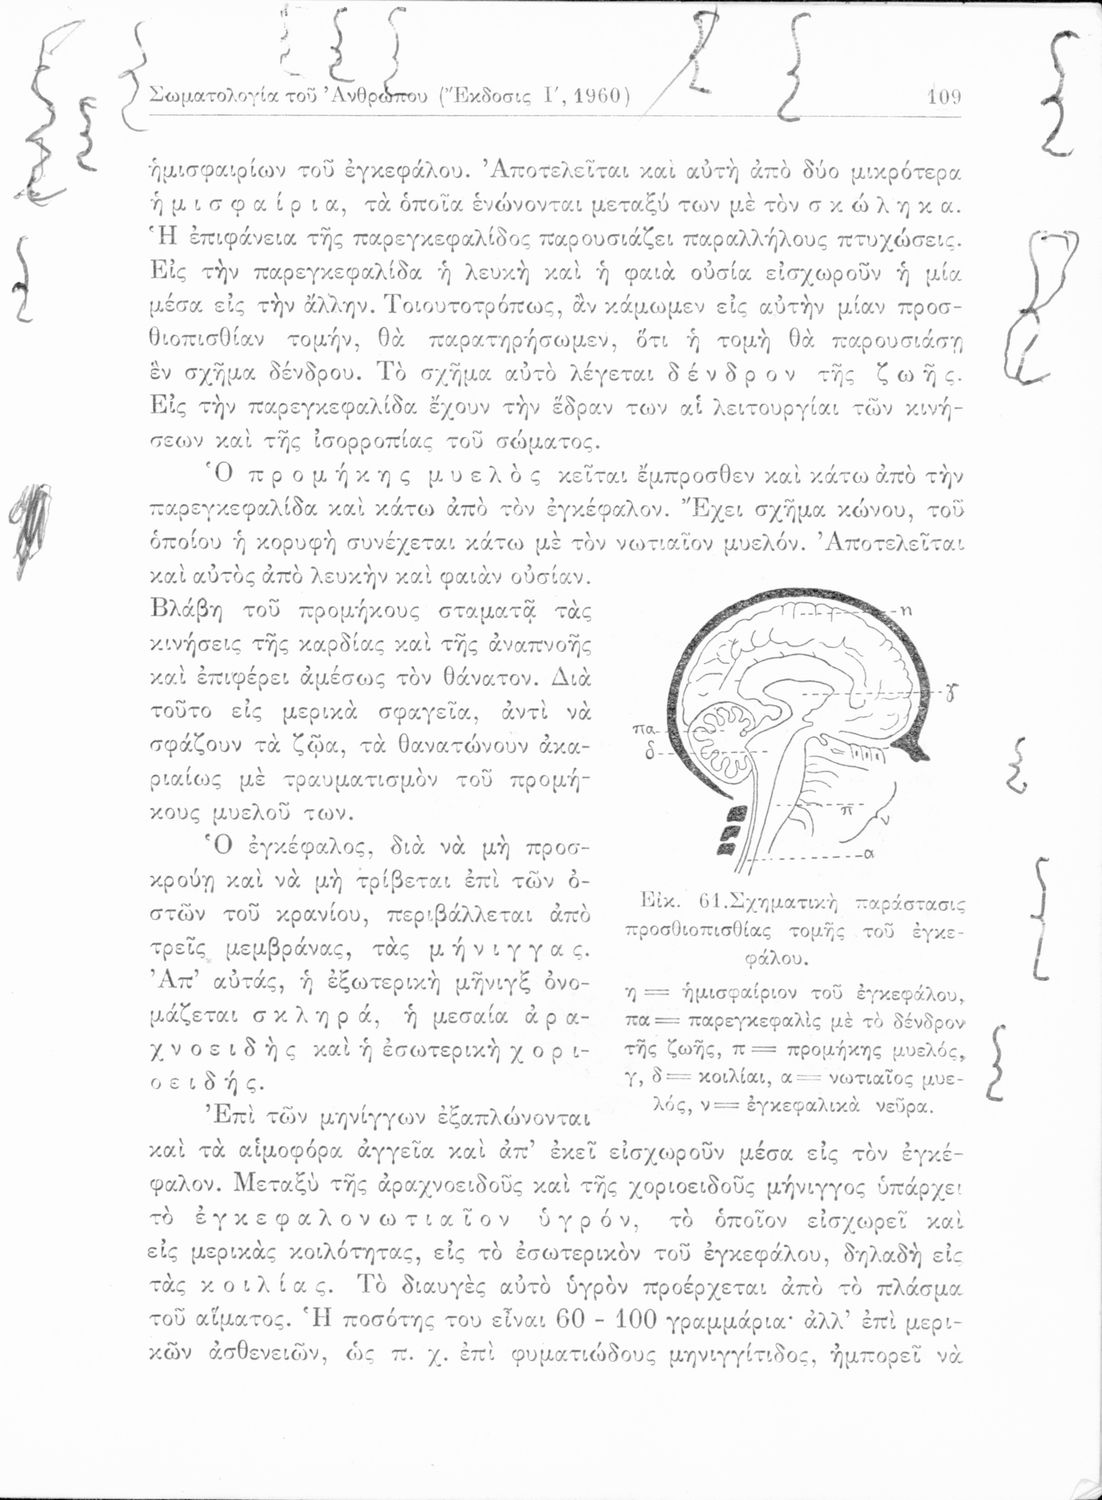 Σωματολογία τοῦ Ἀνθρώπου (Ἔκδοσις Ι′, 1960) 109
ἡμισφαιρίων τοῦ ἐγκεφάλου. Ἀποτελεῖται καὶ αὐτὴ ἀπὸ δύο μικρότερα
ἡμισφαίρια, τὰ ὁποῖα ἑνώνονται μεταξύ των μὲ τὸν σκώληκα.
Ἡ ἐπιφάνεια τῆς παρεγκεφαλίδος παρουσιάζει παραλλήλους πτυχώσεις.
Εἰς τὴν παρεγκεφαλίδα ἡ λευκὴ καὶ ἡ φαιὰ οὐσία εἰσχωροῦν ἡ μία
μέσα εἰς τὴν ἄλλην. Τοιουτοτρόπως, ἂν κάμωμεν εἰς αὐτὴν μίαν προσ-
θιοπισθίαν τομήν, θὰ παρατηρήσωμεν, ὅτι ἡ τομὴ θὰ παρουσιάσῃ
ἓν σχῆμα δένδρου. Τὸ σχῆμα αὐτὸ λέγεται δένδρον τῆς ζωῆς.
Εἰς τὴν παρεγκεφαλίδα ἔχουν τὴν ἕδραν των αἱ λειτουργίαι τῶν κινή-
σεων καὶ τῆς ἰσορροπίας τοῦ σώματος.
Ὁ προμήκης μυελὸς κεῖται ἔμπροσθεν καὶ κάτω ἀπὸ τὴν
παρεγκεφαλίδα καὶ κάτω ἀπὸ τὸν ἐγκέφαλον. Ἔχει σχῆμα κώνου, τοῦ
ὁποίου ἡ κορυφὴ συνέχεται κάτω μὲ τὸν νωτιαῖον μυελόν. Ἀποτελεῖται
καὶ αὐτὸς ἀπὸ λευκὴν καὶ φαιὰν οὐσίαν.
Βλάβη τοῦ προμήκους σταματᾷ τὰς
κινήσεις τῆς καρδίας καὶ τῆς ἀναπνοῆς
καὶ ἐπιφέρει ἀμέσως τὸν θάνατον. Διὰ
τοῦτο εἰς μερικὰ σφαγεῖα, ἀντὶ νὰ
σφάζουν τὰ ζῷα, τὰ θανατώνουν ἀκα-
ριαίως μὲ τραυματισμὸν τοῦ προμή-
κους μυελοῦ των.
Ὁ ἐγκέφαλος, διὰ νὰ μὴ προσ-
κρούῃ καὶ νὰ μὴ τρίβεται ἐπὶ τῶν ὀ-
στῶν τοῦ κρανίου, περιβάλλεται ἀπὸ
τρεῖς μεμβράνας, τὰς μήνιγγας.
Ἀπ’ αὐτάς, ἡ ἐξωτερικὴ μῆνιγξ ὀνο-
μάζεται σκληρά, ἡ μεσαία ἀρα-
χνοειδὴς καὶ ἡ ἐσωτερικὴ χορι-
οειδής.
Ἐπὶ τῶν μηνίγγων ἐξαπλώνονται
η
γ
πα
δ
π
ν
α
Εἰκ. 61. Σχηματικὴ παράστασις
προσθιοπισθίας τομῆς τοῦ ἐγκε-
φάλου.
η = ἡμισφαίριον τοῦ ἐγκεφάλου,
πα = παρεγκεφαλὶς μὲ τὸ δένδρον
τῆς ζωῆς, π = προμήκης μυελός,
γ, δ = κοιλίαι, α = νωτιαῖος μυε-
λός, ν = ἐγκεφαλικὰ νεῦρα.
καὶ τὰ αἱμοφόρα ἀγγεῖα καὶ ἀπ’ ἐκεῖ εἰσχωροῦν μέσα εἰς τὸν ἐγκέ-
φαλον. Μεταξὺ τῆς ἀραχνοειδοῦς καὶ τῆς χοριοειδοῦς μήνιγγος ὑπάρχει
τὸ ἐγκεφαλονωτιαῖον ὑγρόν, τὸ ὁποῖον εἰσχωρεῖ καὶ
εἰς μερικὰς κοιλότητας, εἰς τὸ ἐσωτερικὸν τοῦ ἐγκεφάλου, δηλαδὴ εἰς
τὰς κοιλίας. Τὸ διαυγὲς αὐτὸ ὑγρὸν προέρχεται ἀπὸ τὸ πλάσμα
τοῦ αἵματος. Ἡ ποσότης του εἶναι 60 - 100 γραμμάρια· ἀλλ’ ἐπὶ μερι-
κῶν ἀσθενειῶν, ὡς π. χ. ἐπὶ φυματιώδους μηνιγγίτιδος, ἠμπορεῖ νὰ